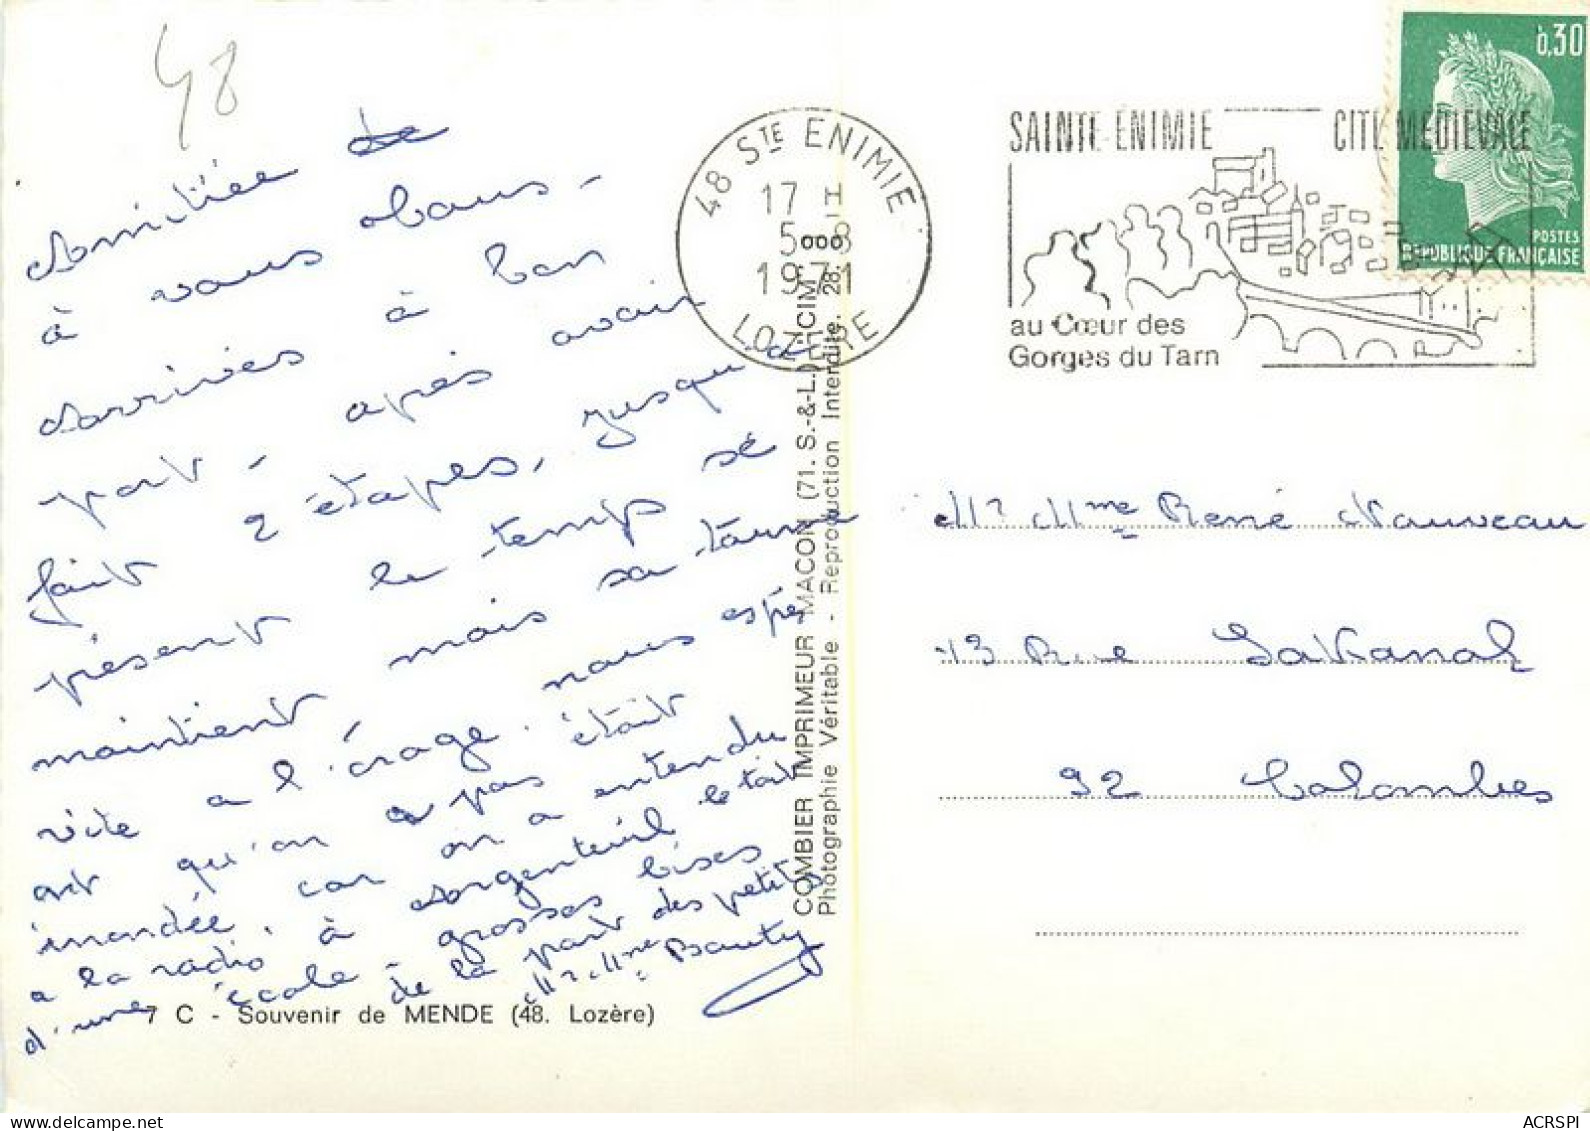 48
Amitiée de
à vous deux -
Arrivés à bon
port, après avoir
fait 2 étapes, jusqu'à
présent le temps se
maintient mais sa tourne
vite a l'orage. nous espé
qu'on a pas était
inondée, car on a entendu
a la radio, à Argenteuil le toit
d'une école - grosses bises
de la part des petits
Mr Mme Bauty
7 C - Souvenir de MENDE (48. Lozère)
COMBIER IMPRIMEUR MACON (71. S.-&-L.) "CIM"
Photographie Véritable - Reproduction Interdite. 28.
48 STE ENIMIE
17 H
5 - 8
1971
LOZERE
SAINTE ENIMIE CITE MEDIEVALE
au Cœur des
Gorges du Tarn
0,30
POSTES
REPUBLIQUE FRANÇAISE
Mr Mme René Nauveau
13 Rue Lakanal
92 Colombes
ACRSPI